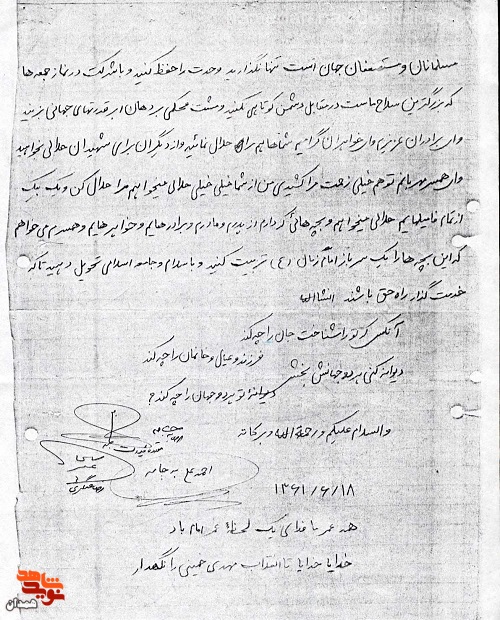 مسلمانان و مستضعفان جهان است تنها نگذارید وحدت را حفظ کنید و با شرکت در نماز جمعه ها
که بزرگترین سلاح ماست در مقابل دشمن کوتاهی نکنید و مشت محکمی بر دهان ابر قدرتهای جهانی بزنید
وای برادران عزیزم وای خواهران گرامیم شماها هم مرا حلال نمائید و از دیگران برای شهیدان حلالی بخواهید
وای همسر مهربانم تو هم خیلی زحمت مرا کشیدی من از شما خیلی خیلی حلالی میخواهم مرا حلال کن و یک یک
از تمام فامیلهایم حلالی میخواهم و بچه هائی که دارم از پدرم و مادرم و برادرهایم و خواهرهایم و همسرم می خواهم
که این بچه ها را یک سرباز امام زمان (عج) تربیت کنید و با اسلام و جامعه اسلامی تحویل دهید تا که
خدمت گذار راه حق باشند انشاالله
آنکس که تو را شناخت جان را چه کند
فرزند و عیال و خانمان را چه کند
دیوانه کنی هر دو جهانش بخشی
دیوانه تو هر دو جهان را چه کند
والسلام علیکم و رحمة الله و برکاته
احمد علی
۱۳۶۱/۶/۱۸
همه عمر ما فدای یک لحظۀ عمر امام باد
خدایا خدایا تا انقلاب مهدی خمینی را نگهدار
نوید شاهد